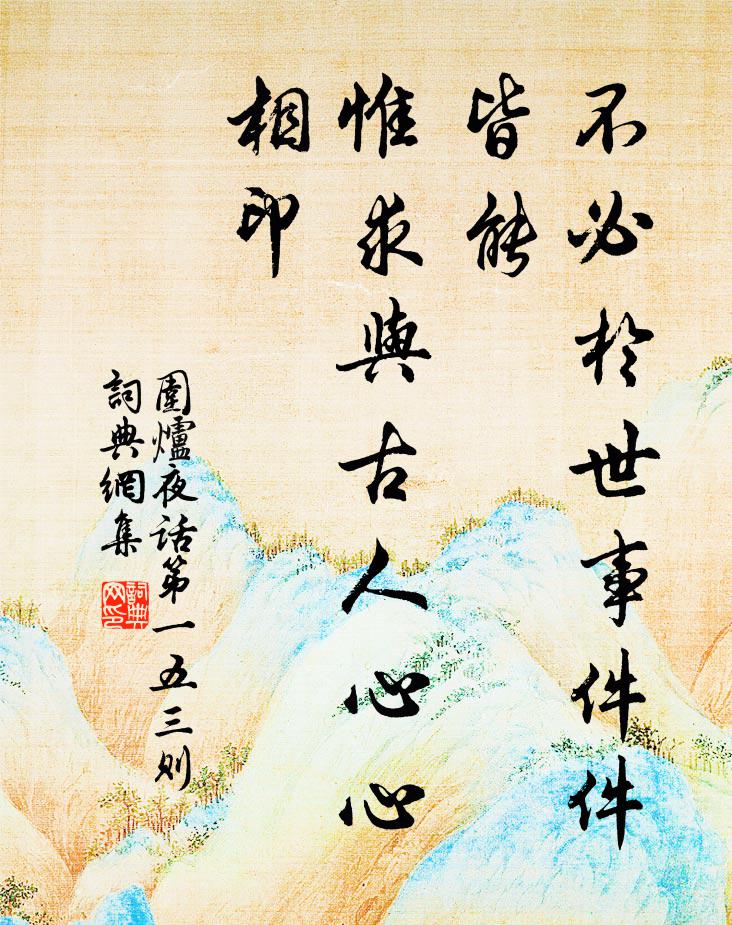 不必於世事件件
皆能
惟求與古人心心
相印
圍爐夜话第一五三则
詞典網集
詞典
网印